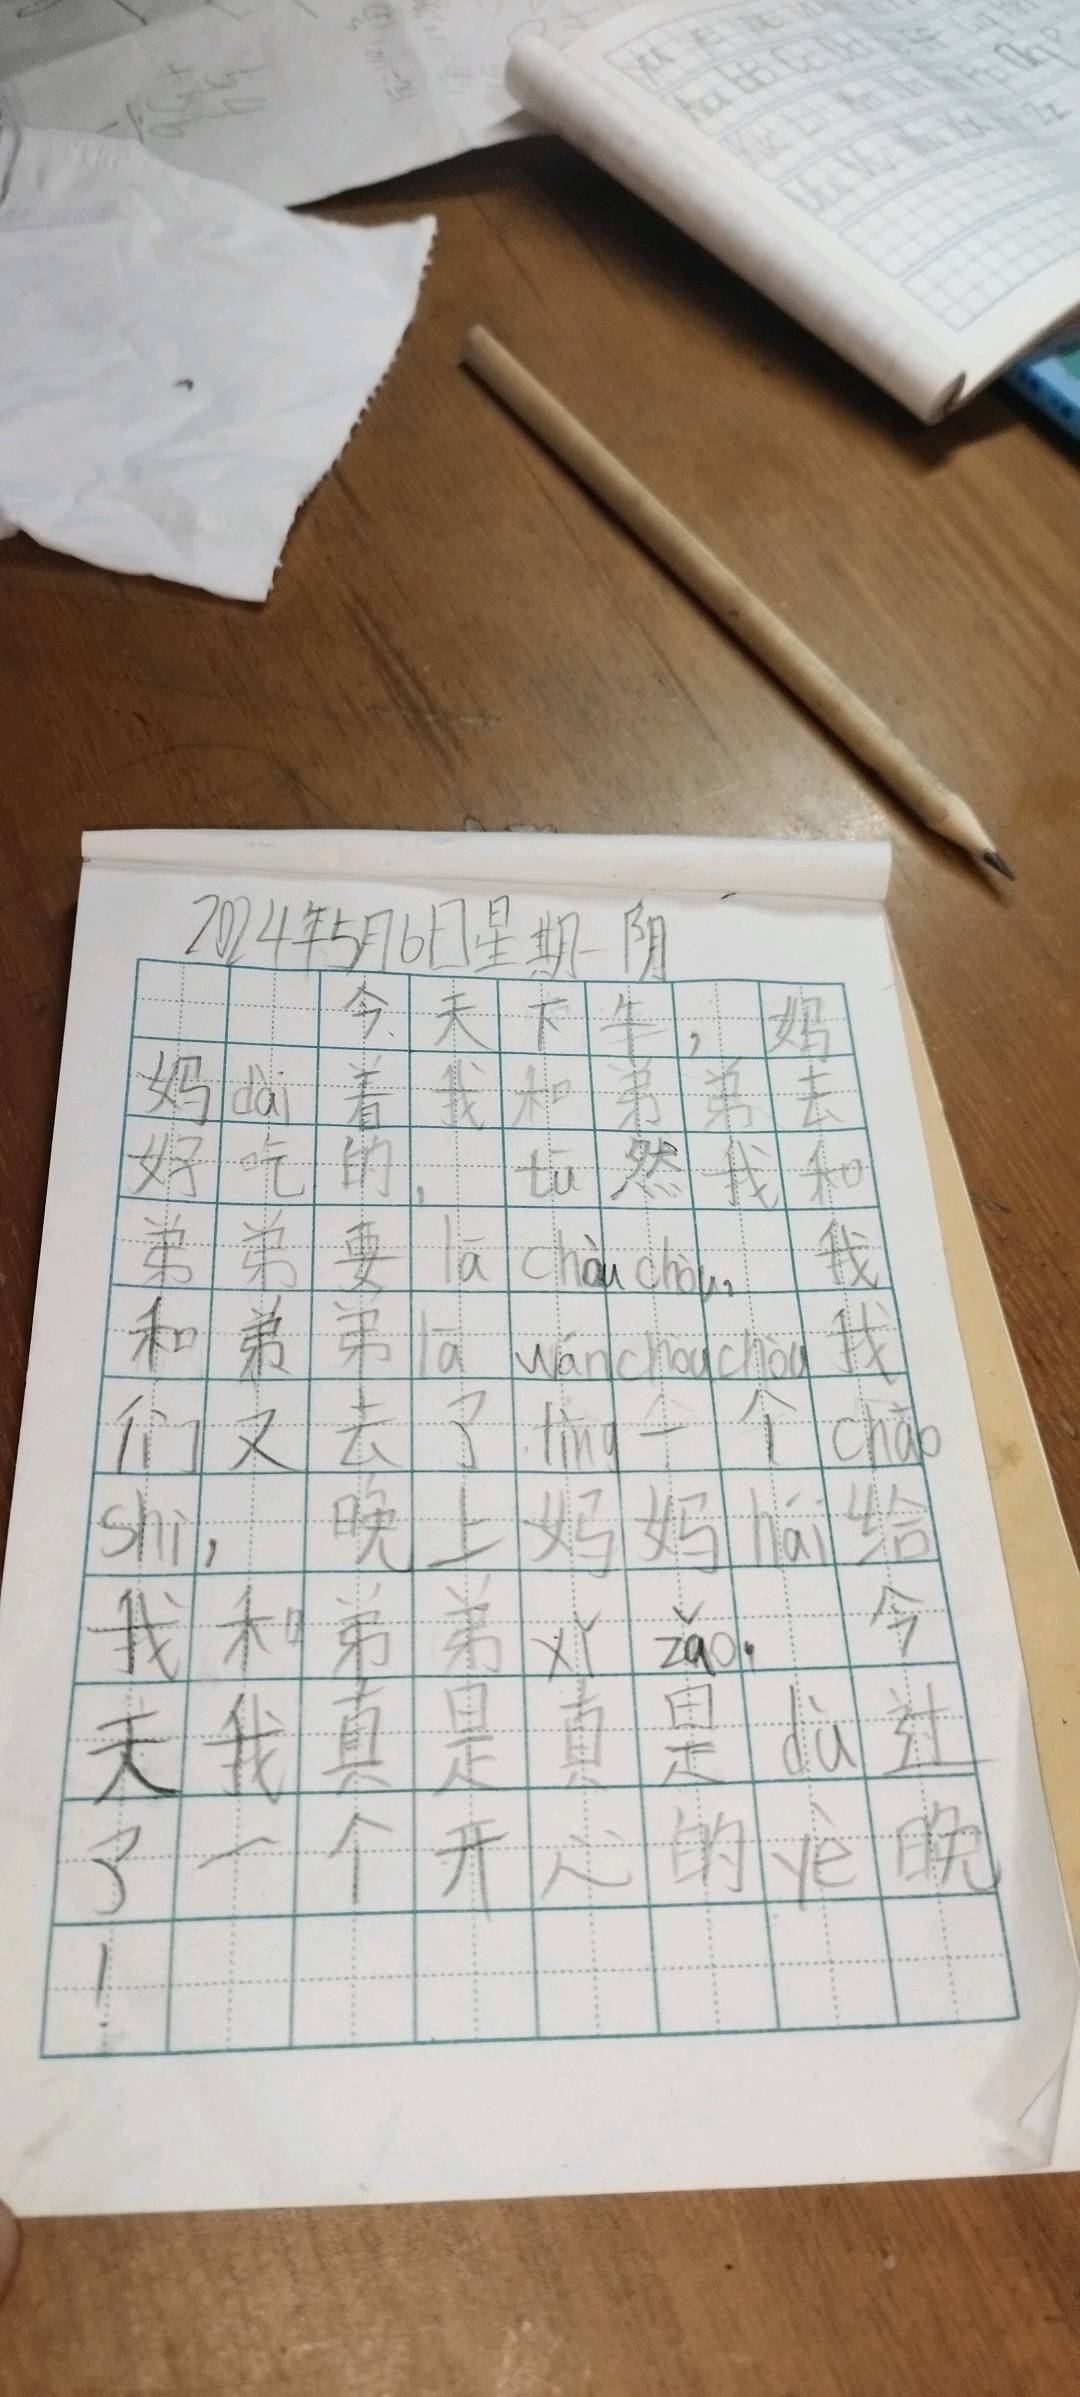 2024年5月6日星期一 阴
今天下午，妈
妈dài着我和弟弟去
好吃的，tū然我和
弟弟要lā chòu chòu，我
和弟弟lā wán chòu chòu 我
们又去了lìng一个chāo
shì，晚上妈妈hái给
我和弟弟xǐ zǎo。今
天我真是真是dù过
了一个开心的yè晚
！